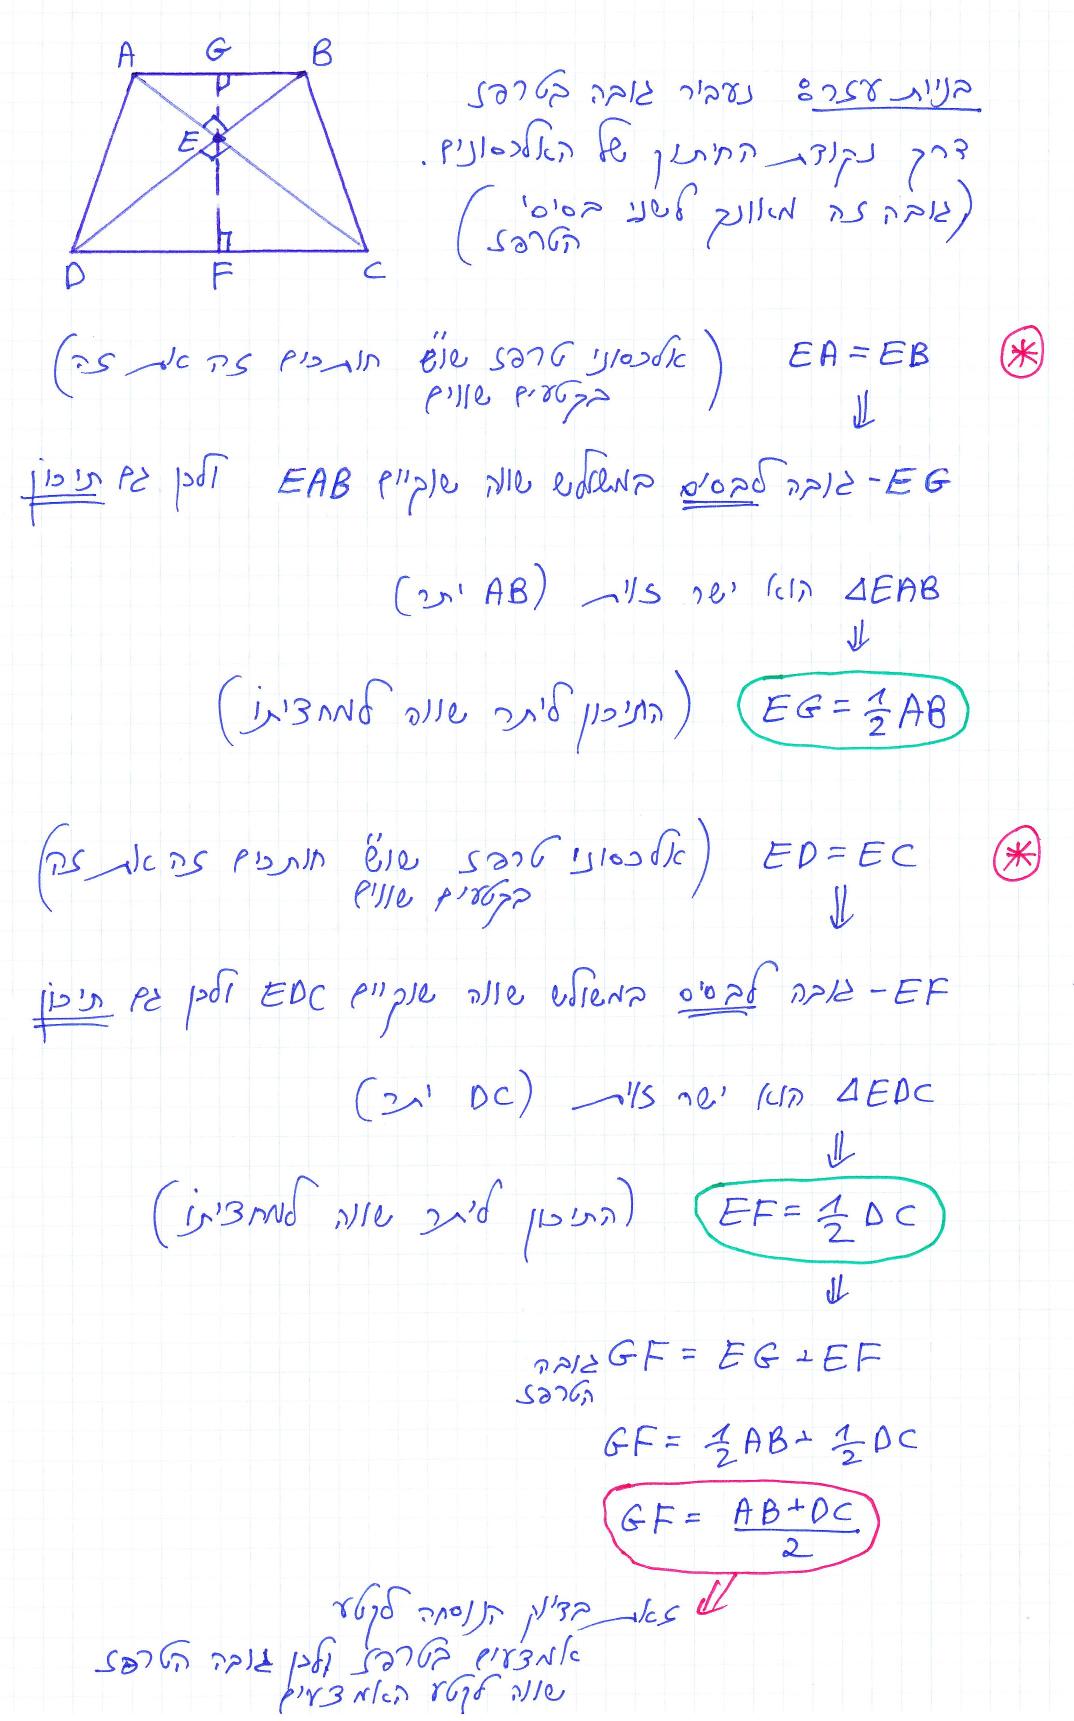 A G B
E
D F C
בניית עזר: נעביר גובה בטרפז
דרך נקודת החיתוך של האלכסונים.
(גובה זה מאונך לשני בסיסי
הטרפז)
* EA = EB (אלכסוני טרפז שו"ש חותכים זה את זה
בקטעים שווים)
⇓
EG - גובה לבסיס במשולש שווה שוקיים EAB ולכן גם תיכון
ΔEAB הוא ישר זווית (AB יתר)
⇓
EG = ½ AB (התיכון ליתר שווה למחציתו)
* ED = EC (אלכסוני טרפז שו"ש חותכים זה את זה
בקטעים שווים)
⇓
EF - גובה לבסיס במשולש שווה שוקיים EDC ולכן גם תיכון
ΔEDC הוא ישר זווית (DC יתר)
⇓
EF = ½ DC (התיכון ליתר שווה למחציתו)
⇓
גובה GF = EG + EF
הטרפז
GF = ½ AB + ½ DC
GF = (AB + DC)/2
⇓ זאת בדיוק הנוסחה לקטע
אמצעים בטרפז ולכן גובה הטרפז
שווה לקטע האמצעים